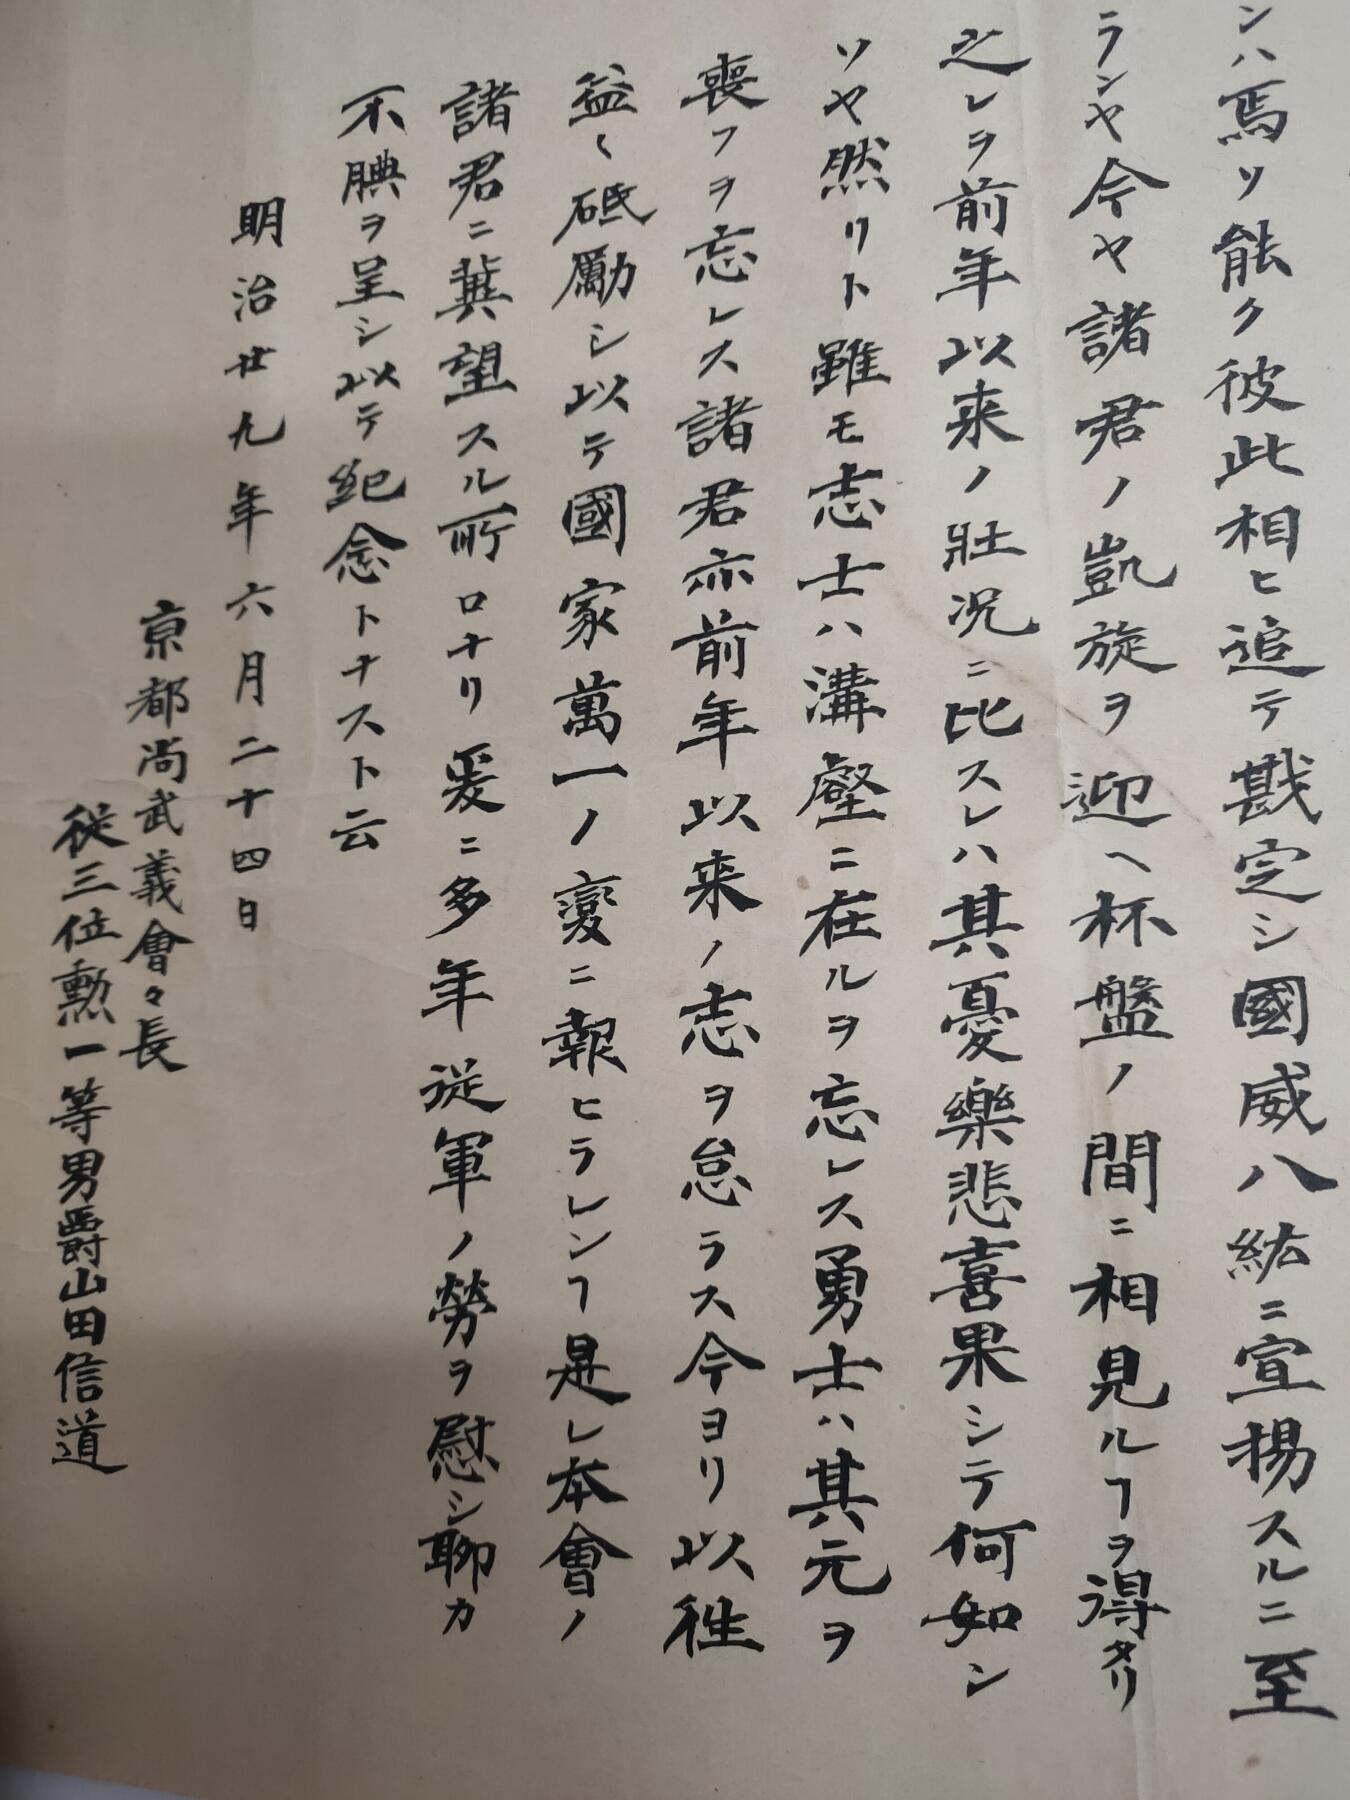 ンハ焉ソ能ク彼此相ヒ追テ戡定シ國威八紘ニ宣揚スルニ至
ランヤ今ヤ諸君ノ凱旋ヲ迎ヘ杯盤ノ間ニ相見ルヿヲ得タリ
之レヲ前年以来ノ壯况ニ比スレハ其憂樂悲喜果シテ何如ン
ソヤ然リト雖モ志士ハ溝壑ニ在ルヲ忘レス勇士ハ其元ヲ
喪フヲ忘レス諸君亦前年以来ノ志ヲ怠ラス今ヨリ以徃
益〻砥勵シ以テ國家萬一ノ變ニ報ヒラレンヿ是レ本會ノ
諸君ニ冀望スル所ロナリ爰ニ多年從軍ノ勞ヲ慰シ聊カ
不腆ヲ呈シ以テ紀念トナスト云
明治廿九年六月二十四日
京都尚武義會々長
從三位勲一等男爵山田信道